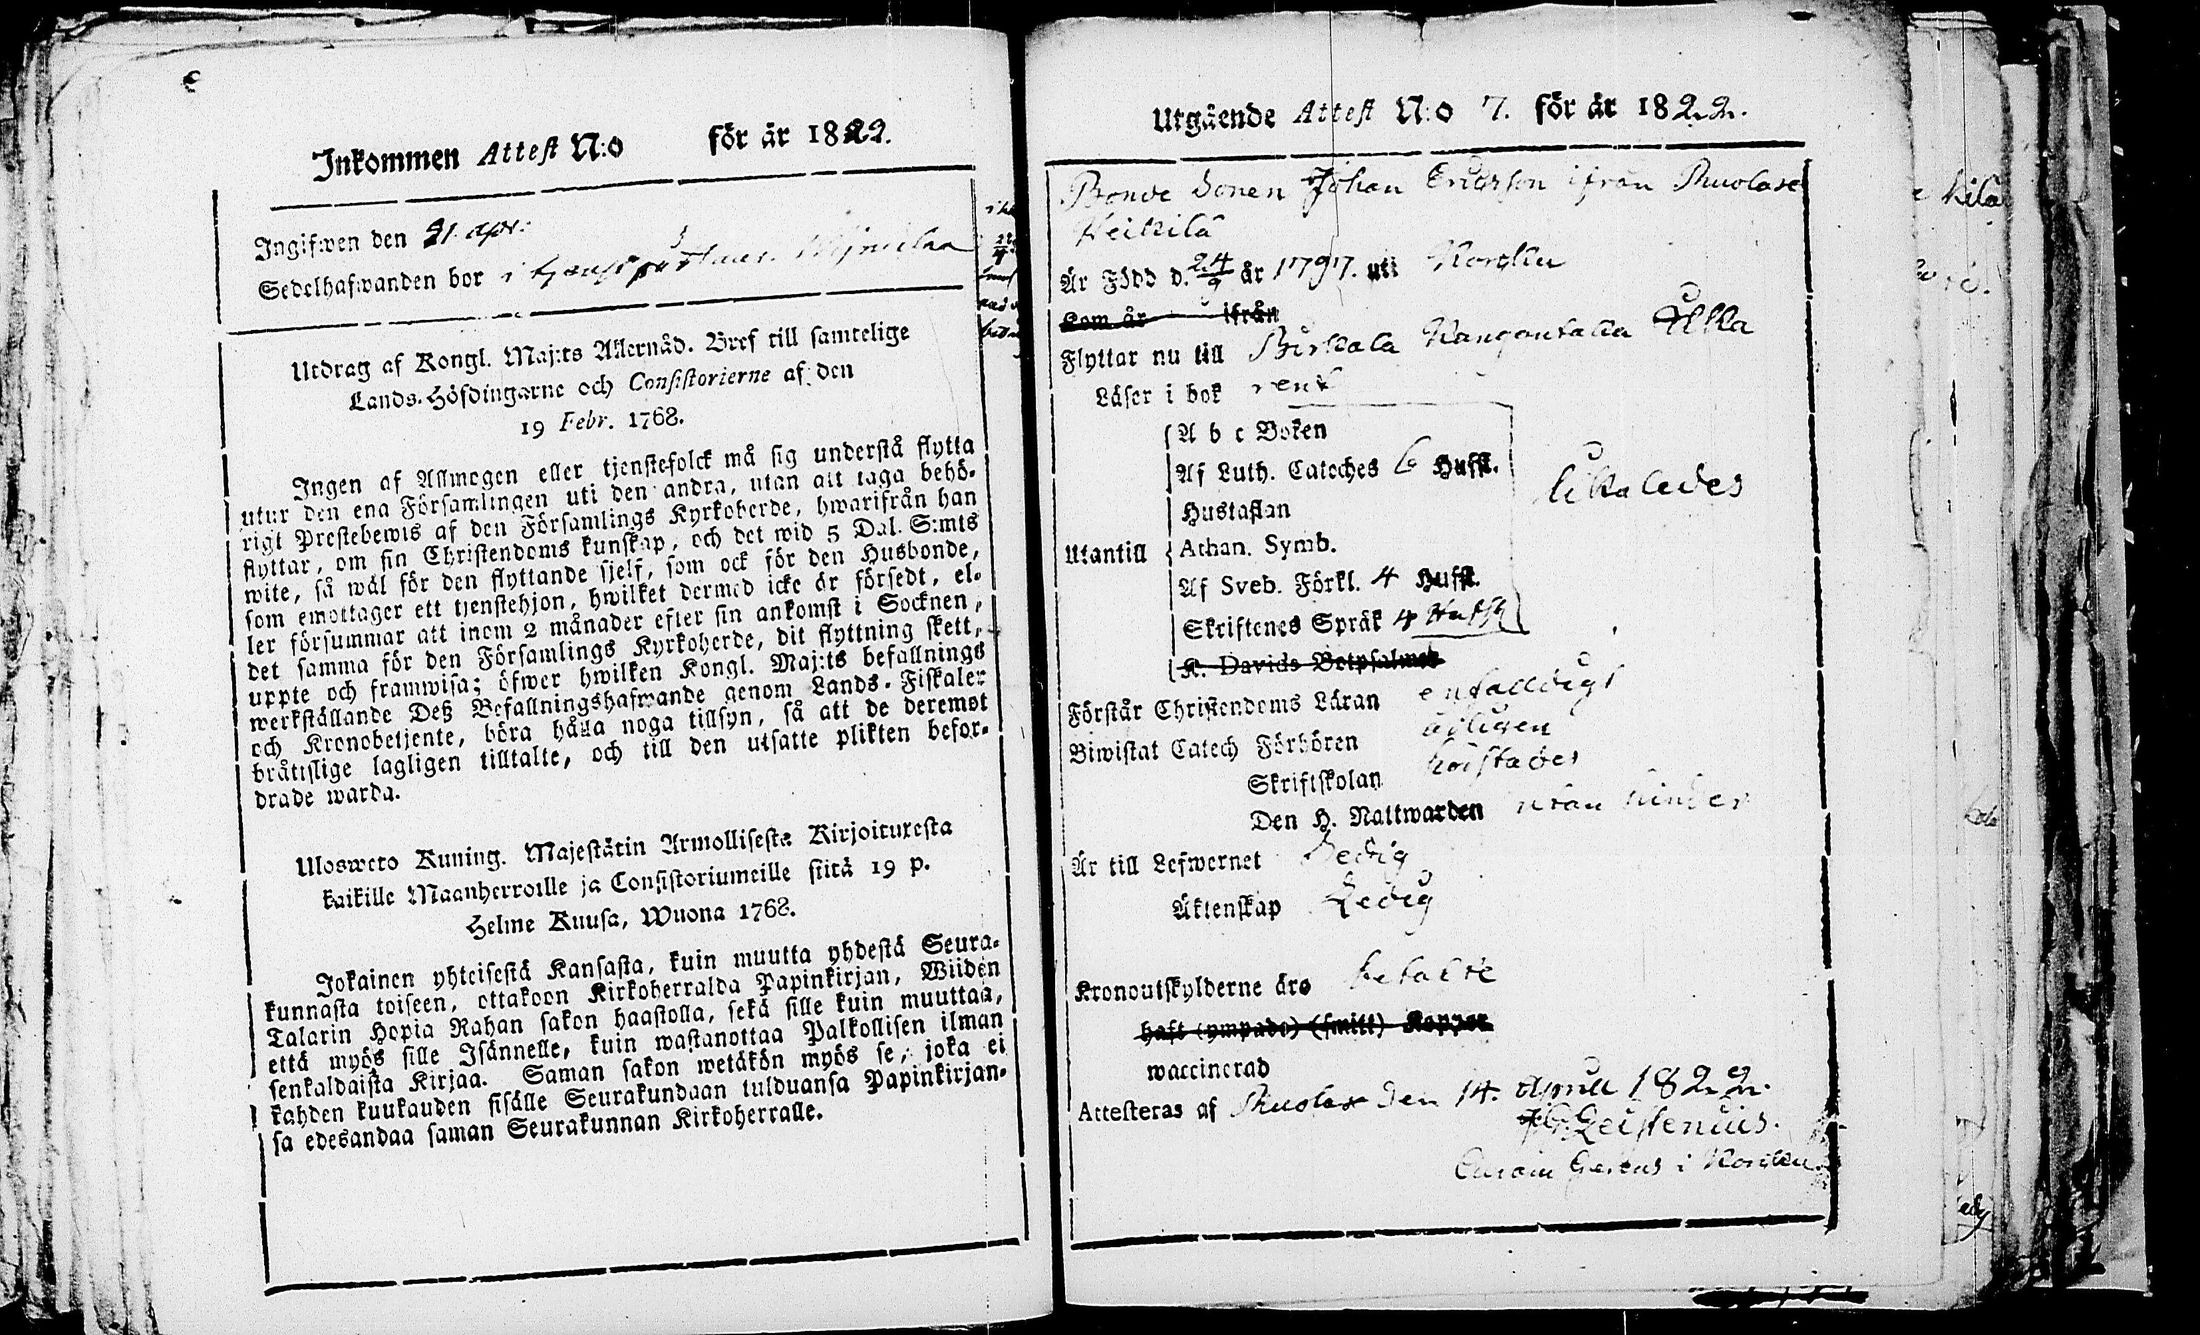 Inkommen Attest N:o för år 1822.
Ingifwen den 21. apr:
Sedelhafwanden bor i
Utdrag af Kongl. Maj:ts Allernåd. Bref till samtelige
Lands-Höfdingarne och Consistorierne af den
19 Febr. 1768.
Ingen af Allmogen eller tjenstefolck må sig understå flytta
utur den ena Församlingen uti den andra, utan att taga behö-
rigt Prestebewis af den Församlings Kyrkoherde, hwarifrån han
flyttar, om sin Christendoms kunskap, och det wid 5 Dal. S:mts
wite, så wäl för den flyttande sjelf, som ock för den Husbonde,
som emottager ett tjenstehjon, hwilket dermed icke är försedt, el-
ler försummar att inom 2 månader efter sin ankomst i Socknen,
det samma för den Församlings Kyrkoherde, dit flyttning skett,
uppte och framwisa; öfwer hwilken Kongl. Maj:ts befallnings
werkställande Deß Befallningshafwande genom Lands-Fiskaler
och Kronobetjente, böra hålla noga tillsyn, så att de deremot
bråttslige lagligen tilltalte, och till den utsatte plikten befor-
drade warda.
Ulosweto Kuning. Majestätin Armollisesta Kirjoituxesta
kaikille Maanherroille ja Consistoriumeille siitä 19 p.
Helme Kuusa, Wuona 1768.
Jokainen yhteisestä Kansasta, kuin muutta yhdestä Seura-
kunnasta toiseen, ottakoon Kirkoherralda Papinkirjan, Wiiden
Talarin Hopia Rahan sakon haastolla, sekä sille kuin muuttaa,
että myös sille Isännelle, kuin wastanottaa Palkollisen ilman
senkaldaista Kirjaa. Saman sakon wetäkön myös se, joka ei
kahden kuukauden sisälle Seurakundaan tulduansa Papinkirjan-
sa edesandaa saman Seurakunnan Kirkoherralle.
Utgående Attest N:o 7. för år 1822.
Bonde Sonen Johan Ericsson ifrån Suolax
Heikilä
Är Född d. 24/9 år 1797. uti
Kom år ifrån
Flyttar nu till Birkala
Läser i bok rent
A b c Boken
Af Luth. Cateches 6 Hufst.
Hustaflan
likaledes
Utantill
Athan. Symb.
Af Sveb. Förkl. 4 Hufst.
Skriftenes Språk 4 Hufst
K. Davids Botpsalmer
Förstår Christendoms Läran enfalldigt
Biwistat Catech Förhören
Skriftskolan
Den H. Nattwarden utan hinder
Är till Lefwernet
Äktenskap Ledig
Kronoutskylderne äro betalte
haft (ympade) (smitt) Koppor
waccinerad
Attesteras af den 14. April 1822.